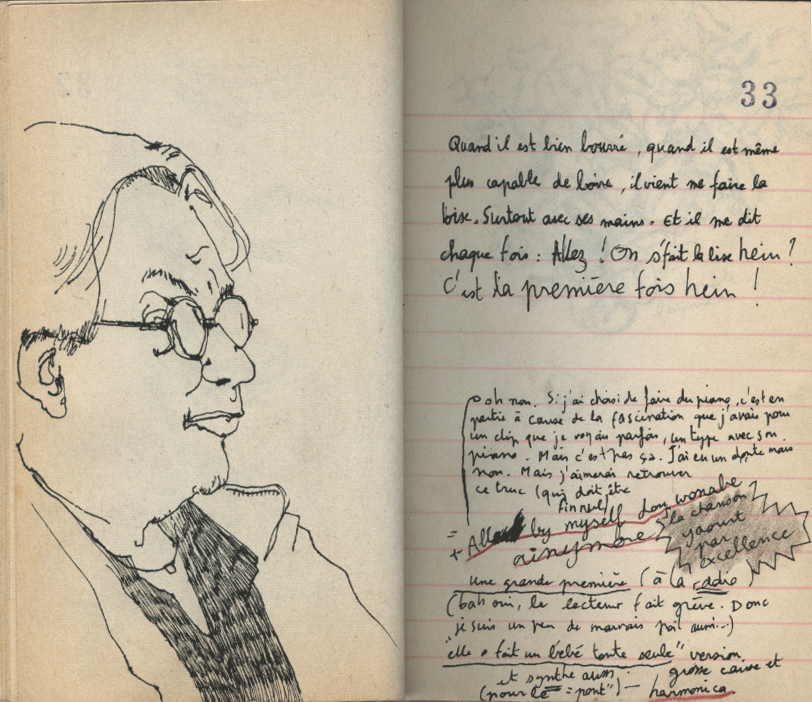 33
Quand il est bien bourré, quand il est même
plus capable de boire, il vient me faire la
bise. Surtout avec ses mains. Et il me dit
chaque fois : Allez ! On s'fait la bise hein ?
C'est la première fois hein !
oh non. Si j'ai choisi de faire du piano, c'est en
partie à cause de la fascination que j'avais pour
un clip que je voyais parfois, un type avec son
piano. Mais c'est pas ça. J'ai eu un doute mais
non. Mais j'aimerais retrouver
ce truc (qui doit être
= + by myself don wanabe
ainymore
la chanson
yaourt
par
excellence
une grande première (à la radio)
(bah oui, le lecteur fait grève. Donc
je suis un peu de mauvais poil aussi...)
"elle a fait un bébé toute seule" version
grosse caisse et
et synthé aussi
(pour le = "pont") — harmonica.